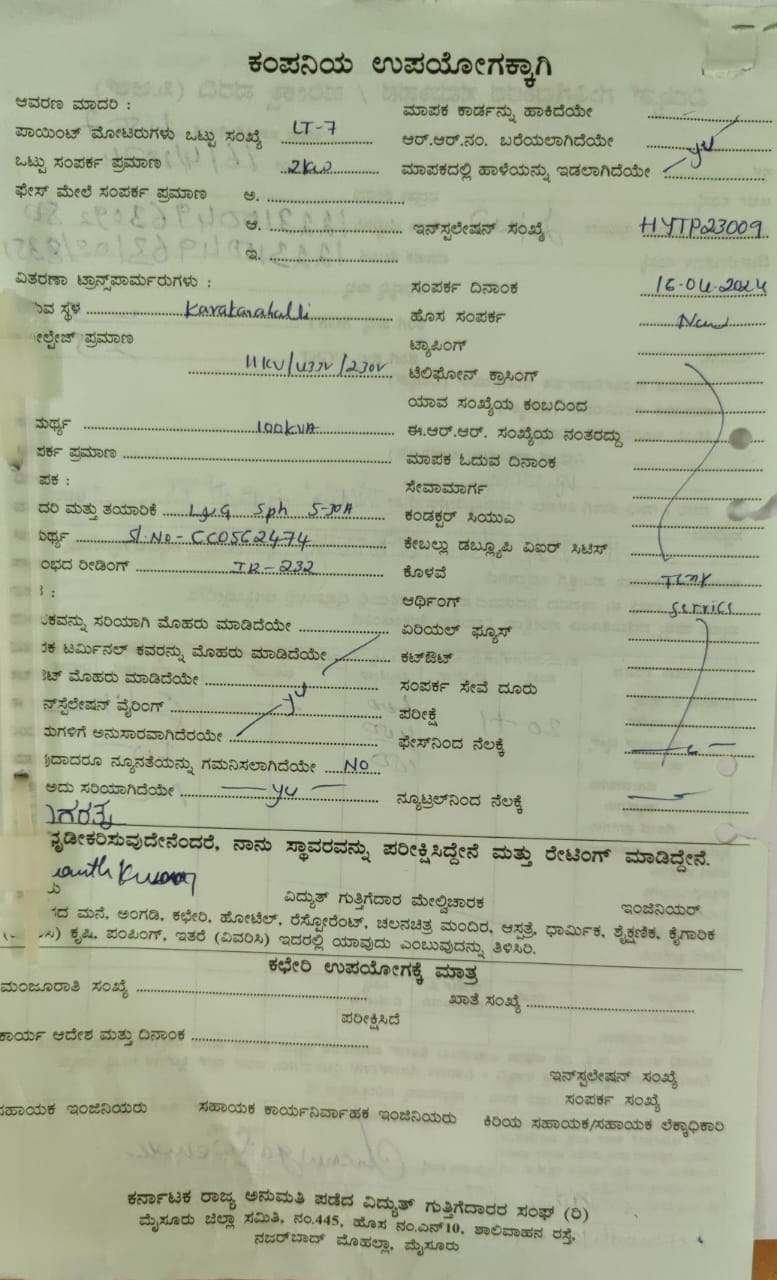 ಕಂಪನಿಯ ಉಪಯೋಗಕ್ಕಾಗಿ
ಆವರಣ ಮಾದರಿ :
ಮಾಪಕ ಕಾರ್ಡನ್ನು ಹಾಕಿದೆಯೇ
ಪಾಯಿಂಟ್ ಮೋಟರುಗಳು ಒಟ್ಟು ಸಂಖ್ಯೆ LT-7
ಆರ್.ಆರ್.ನಂ. ಬರೆಯಲಾಗಿದೆಯೇ
ಒಟ್ಟು ಸಂಪರ್ಕ ಪ್ರಮಾಣ 2KW
ಮಾಪಕದಲ್ಲಿ ಹಾಳೆಯನ್ನು ಇಡಲಾಗಿದೆಯೇ
ಫೇಸ್ ಮೇಲೆ ಸಂಪರ್ಕ ಪ್ರಮಾಣ ಅ.
ಆ.
ಇನ್‌ಸ್ಪಲೇಷನ್ ಸಂಖ್ಯೆ HYTP23009
ಇ.
ವಿತರಣಾ ಟ್ರಾನ್ಸ್‌ಪಾರ್ಮರುಗಳು :
ಸಂಪರ್ಕ ದಿನಾಂಕ 16-04-2024
ುವ ಸ್ಥಳ Karakanahalli
ಹೊಸ ಸಂಪರ್ಕ New
ೋಲ್ಟೇಜ್ ಪ್ರಮಾಣ
ಟ್ಯಾಪಿಂಗ್
11KV/433V/230V
ಟೆಲಿಫೋನ್ ಕ್ರಾಸಿಂಗ್
ಯಾವ ಸಂಖ್ಯೆಯ ಕಂಬದಿಂದ
ಮರ್ಥ್ಯ 100KVA
ಈ.ಆರ್.ಆರ್. ಸಂಖ್ಯೆಯ ನಂತರದ್ದು
ಪರ್ಕ ಪ್ರಮಾಣ
ಮಾಪಕ ಓದುವ ದಿನಾಂಕ
ಪಕ :
ಸೇವಾಮಾರ್ಗ
ದರಿ ಮತ್ತು ತಯಾರಿಕೆ L&G Sph 5-30A
ಕಂಡಕ್ಟರ್ ಸಿಯುಎ
ರ್ಥ್ಯ Sl.No-CC0562474
ಕೇಬಲ್ಲು ಡಬ್ಲ್ಯೂಪಿ ವಿಐರ್ ಸಿಟಿಸ್
ಂಭದ ರೀಡಿಂಗ್ IR-232
ಕೊಳವೆ Temp
:
ಆರ್ಥಿಂಗ್ Service
ಕವನ್ನು ಸರಿಯಾಗಿ ಮೊಹರು ಮಾಡಿದೆಯೇ
ಏರಿಯಲ್ ಫ್ಯೂಸ್
ಕ ಟರ್ಮಿನಲ್ ಕವರನ್ನು ಮೊಹರು ಮಾಡಿದೆಯೇ
ಕಟ್‌ಔಟ್
ಟ್ ಮೊಹರು ಮಾಡಿದೆಯೇ
ಸಂಪರ್ಕ ಸೇವೆ ದೂರು
ನ್‌ಸ್ಪೆಲೇಷನ್ ವೈರಿಂಗ್
ಪರೀಕ್ಷೆ
ಮಗಳಿಗೆ ಅನುಸಾರವಾಗಿದೆರಯೇ
ಫೇಸ್‌ನಿಂದ ನೆಲಕ್ಕೆ
ದಾದರೂ ನ್ಯೂನತೆಯನ್ನು ಗಮನಿಸಲಾಗಿದೆಯೇ NO
ಅದು ಸರಿಯಾಗಿದೆಯೇ
ನ್ಯೂಟ್ರಲ್‌ನಿಂದ ನೆಲಕ್ಕೆ
ೃಡೀಕರಿಸುವುದೇನೆಂದರೆ, ನಾನು ಸ್ಥಾವರವನ್ನು ಪರೀಕ್ಷಿಸಿದ್ದೇನೆ ಮತ್ತು ರೇಟಿಂಗ್ ಮಾಡಿದ್ದೇನೆ.
ವಿದ್ಯುತ್ ಗುತ್ತಿಗೆದಾರ ಮೇಲ್ವಿಚಾರಕ
ಇಂಜಿನಿಯರ್
ದ ಮನೆ, ಅಂಗಡಿ, ಕಛೇರಿ, ಹೋಟೆಲ್, ರೆಸ್ಟೋರೆಂಟ್, ಚಲನಚಿತ್ರ ಮಂದಿರ, ಆಸ್ಪತ್ರೆ, ಧಾರ್ಮಿಕ, ಶೈಕ್ಷಣಿಕ, ಕೈಗಾರಿಕ
ಕೃಷಿ, ಪಂಪಿಂಗ್, ಇತರೆ (ವಿವರಿಸಿ) ಇದರಲ್ಲಿ ಯಾವುದು ಎಂಬುವುದನ್ನು ತಿಳಿಸಿರಿ.
ಕಛೇರಿ ಉಪಯೋಗಕ್ಕೆ ಮಾತ್ರ
ಮಂಜೂರಾತಿ ಸಂಖ್ಯೆ
ಖಾತೆ ಸಂಖ್ಯೆ
ಪರೀಕ್ಷಿಸಿದೆ
ಕಾರ್ಯ ಆದೇಶ ಮತ್ತು ದಿನಾಂಕ
ಇನ್‌ಸ್ಪಲೇಷನ್ ಸಂಖ್ಯೆ
ಸಂಪರ್ಕ ಸಂಖ್ಯೆ
ಸಹಾಯಕ ಇಂಜಿನಿಯರು
ಸಹಾಯಕ ಕಾರ್ಯನಿರ್ವಾಹಕ ಇಂಜಿನಿಯರು
ಕಿರಿಯ ಸಹಾಯಕ/ಸಹಾಯಕ ಲೆಕ್ಕಾಧಿಕಾರಿ
ಕರ್ನಾಟಕ ರಾಜ್ಯ ಅನುಮತಿ ಪಡೆದ ವಿದ್ಯುತ್ ಗುತ್ತಿಗೆದಾರರ ಸಂಘ (ರಿ)
ಮೈಸೂರು ಜಿಲ್ಲಾ ಸಮಿತಿ, ನಂ.445, ಹೊಸ ನಂ.ಎನ್10, ಶಾಲಿವಾಹನ ರಸ್ತೆ,
ನಜರ್‌ಬಾದ್ ಮೊಹಲ್ಲಾ, ಮೈಸೂರು